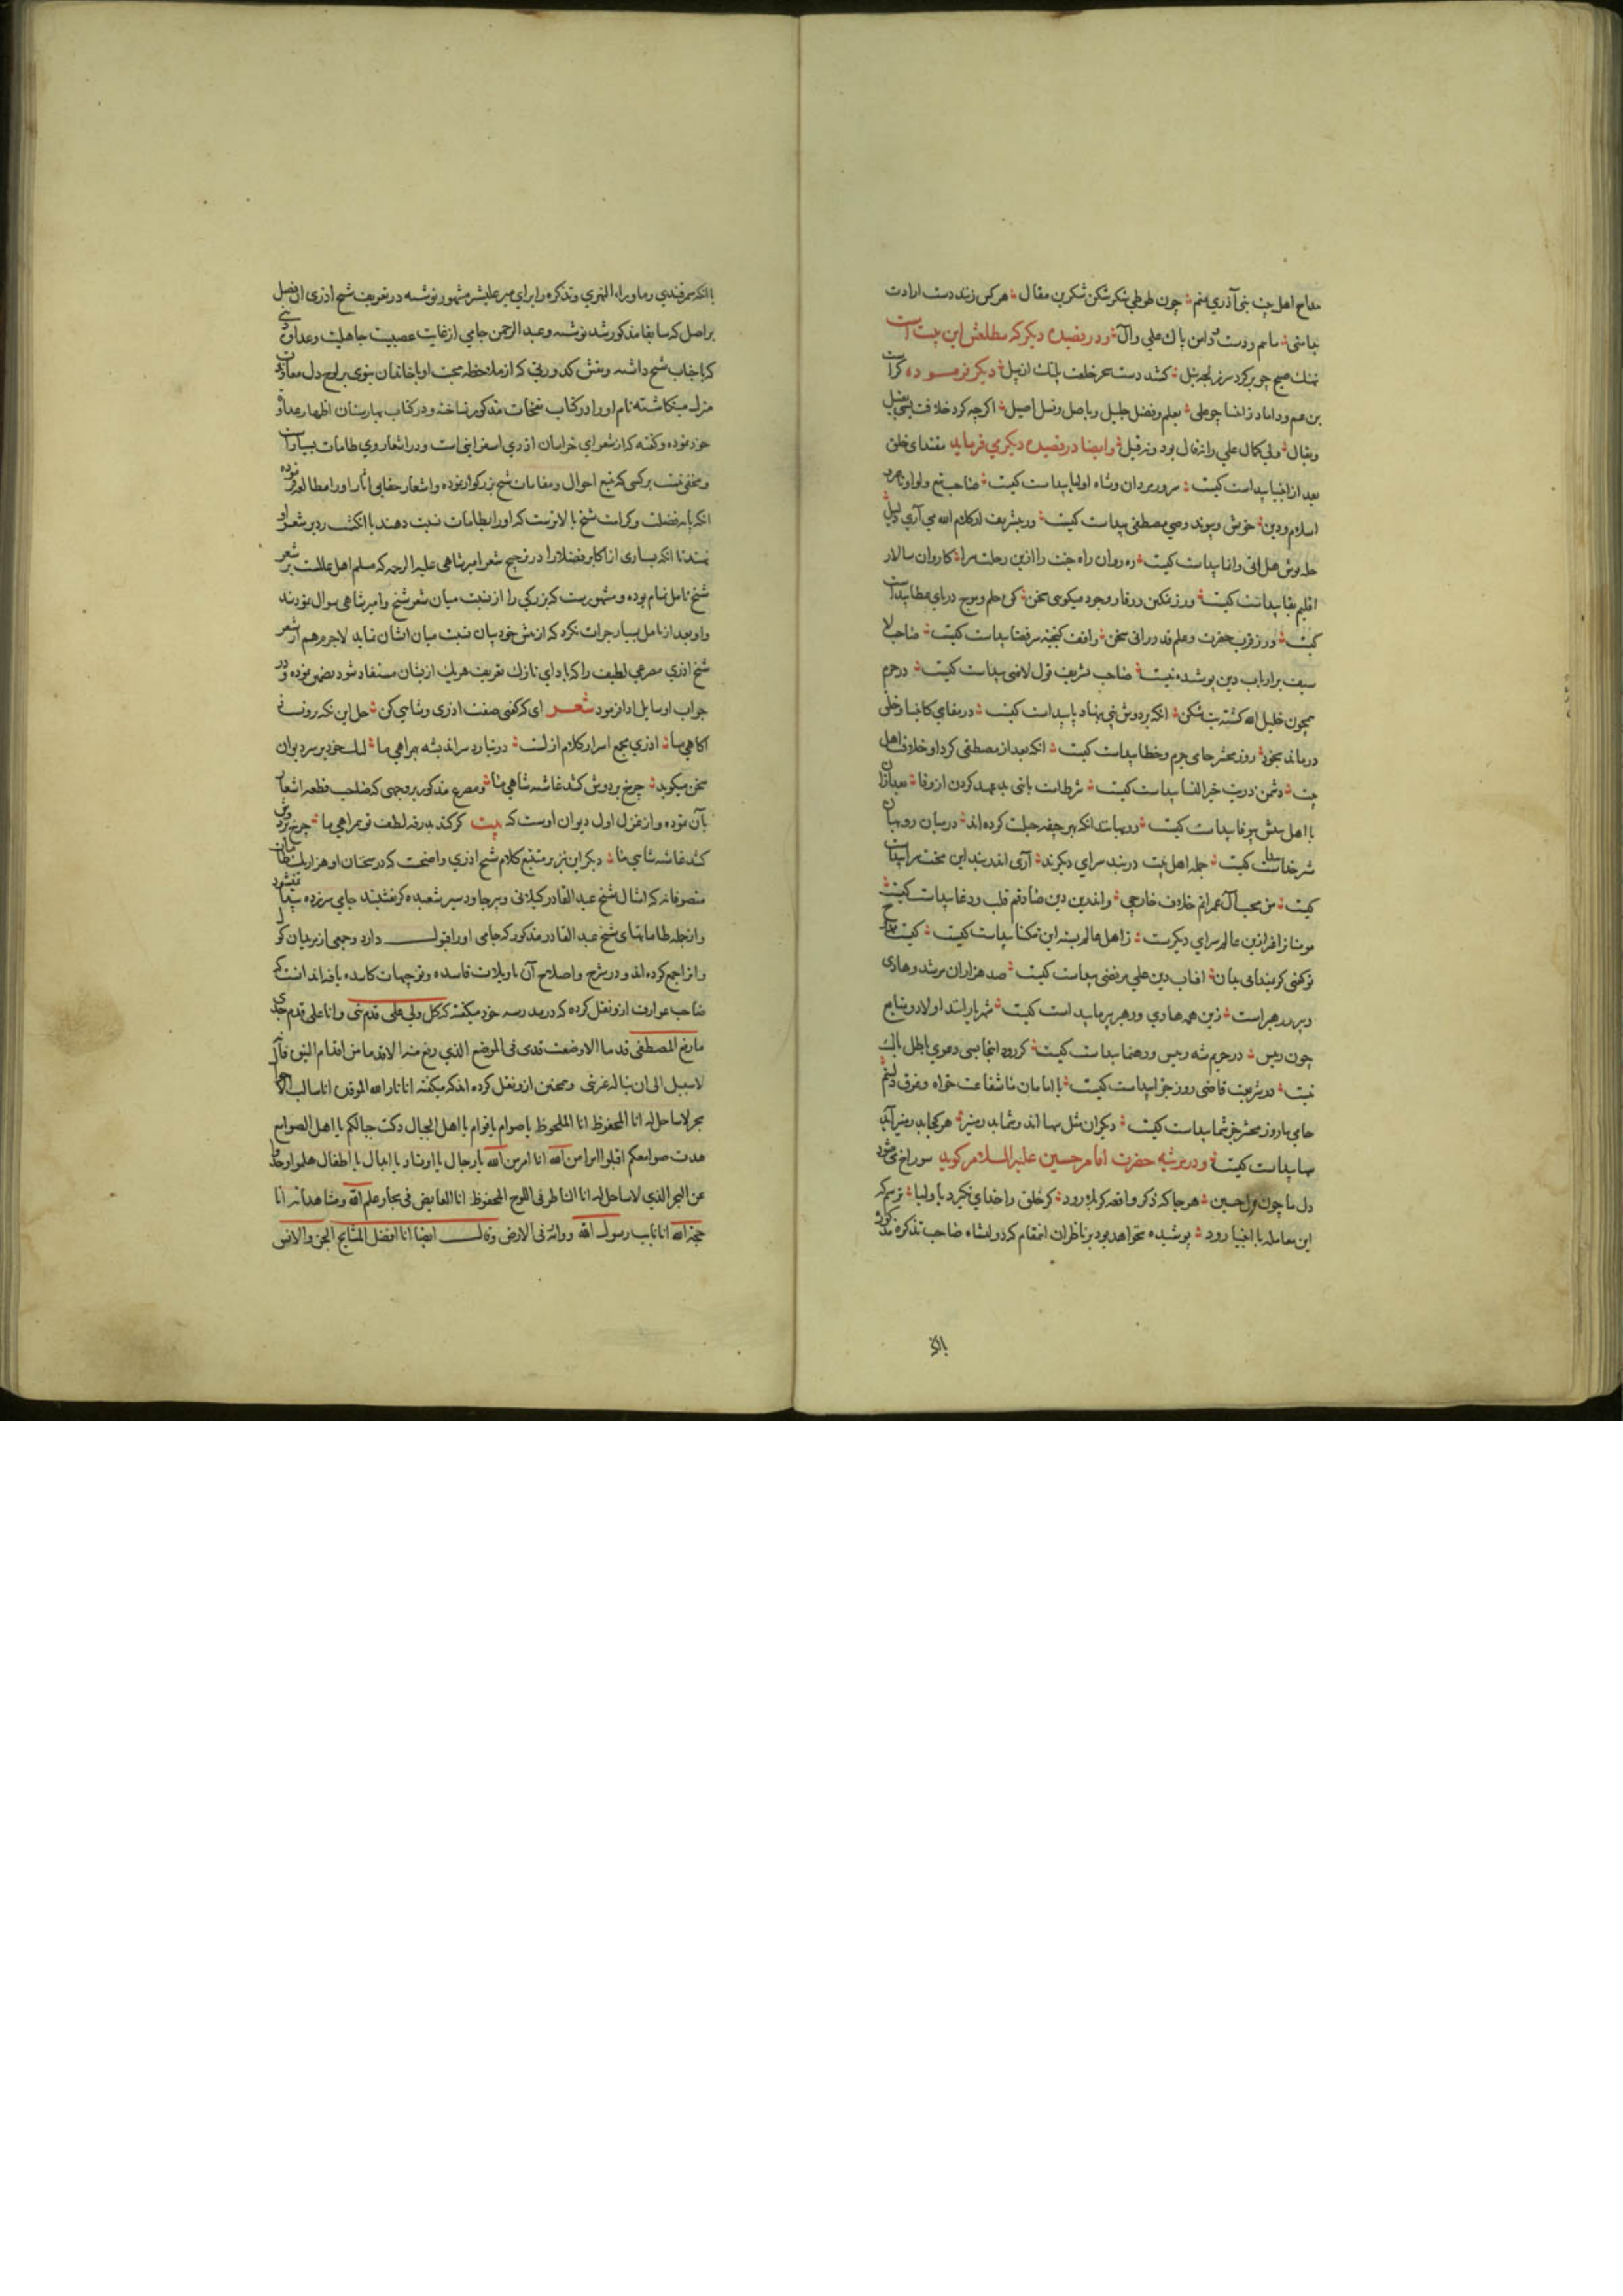 مداح اهل بیت نبی آذری منم چون طوطی شکر شکن شکرین مقال هر کس زند دست ارادت
بدامنی ما هم و دست و دامن پاک علی و آل و در قصیده دیگر که مطلعش این بیت است
نهنگ صبح چو بر کرد سر ز لجه نیل کشد دست سحر خلعت پلنک از پیل دیگر فرموده کراست
بن عم و داماد ز انبیا چو علی بعلم و فضل جلیل و باصل و نسل اصیل اگرچه کرد خلافت بسی بقیل
و بقال ولی کمال علی را نه قال بود و نه قیل و ایضا در قصیده دیگر می فرماید مقتدای خلق
بعد از انبیا پیداست کیست سرور مردان و شاه اولیا پیداست کیست صاحب تیغ و لوا و ناصر
اسلام و دین خویش و پیوند و وصی مصطفی پیداست کیست ور بتشریف از کلام الله می آری دلیل
حله پوش هل اتی و انما پیداست کیست ره روان راه جنت را ازین رحلت سرا کاروان سالار
اقلیم بقا پیداست کیست ور ز تمکین و وقار وجود میکوی سخن کوه حلم و موج دریای عطا پیداست
کیست ور ز قرب حضرت و علم قدر رانی سخن واقف کنجینه سر قضا پیداست کیست صاحب لا
سیف بر ارباب دین پوشیده نیست صاحب تشریف قول لافتی پیداست کیست در حرم
همچون خلیل الله کشته بت شکن انکه بر دوش نبی بنهاد پا پیداست کیست در مقامی کانبیا و خلق
درماند بخود روز محشر حامی جرم و خطا پیداست کیست انکه بعد از مصطفی کرد او خلاف اهل
بیت دشمن ذریت خیر النسا پیداست کیست شرطست باقی بد بعهد کردن از وفا
با اهل بیتش بیوفا پیداست کیست روبهانند انکه بر جیفه حیلت کرده اند در میان روبهان
شیر خدا پیداست کیست جمله اهل بیت دربند سرای دیکرند آری اندر بند این محنت سرا پیداست
کیست من محب آل عمرانم خلاف خارجی واندرین دین صادقم قلب و دغا پیداست کیست
مونسا ز افرازین عالم سرای دیکرست ز اهل عالم بسته این تنکنا پیداست کیست
توکفی کر بندانی بیان افتاب دین علی مرتضی پیداست کیست صد هزاران مرشد و هادی
و پیر و رهبر است زین همه هادی و رهبر پیر ما پیداست کیست شهریارانند اولاد و بنایع
چون ریس در حریم شه ریس و رهنما پیداست کیست کر رود اینجا بسی دعوی باطل باک
نیست در شریعت قاضی روز جزا پیداست کیست با امامان ما شفاعت خواه و غرق
حامی ما روز محشر جز شما پیداست کیست دیکران مثل سها اند و شما بدر منیر هر کجا بدر منیر آید
سها پیداست کیست و در مرثیه حضرت امام حسین علیه السلام کوید سوراخ می شود
دل ما چون کل حسین هر جا که ذکر واقعه کربلا رود کر خلق را خدای نکیرد باولیا ترسم که
این معامله با انبیا رود پوشیده نخواهد بود بر ناظران این مقام که دولتشاه صاحب تذکره مذکوره
با انکه
با انکه سمرقندی و ماوراء النهری و تذکره را برای میر علیشیر مشهور نوشته در تعریف شیخ اذری ان فصل
بر اصل که سابقا مذکور شد نوشته و عبد الرحمن جامی از غایت عصبیت جاهلیت و عداوتی
که با جناب شیخ داشته و نقش کدورتی که از ملاحظه محبت او با خاندان نبوی بر لوح دل معاوت
منزل مینکاشته نام او را در کتاب نفحات مذکور نساخته و در کتاب بهارستان اظهار عداوت
خود نموده و کفته که از شعرای خراسان اذری اسفراینی است و در اشعار وی طامات بسیار است
و مخفی نیست بر کسی که تتبع احوال و مقامات شیخ بزرکوار نموده و اشعار حقایق آثار او را مطالعه فرموده
انکه پایه فضیلت و کرامت شیخ بالاتر است که او را بطامات نسبت دهند یا انکشت رد بر شعر او
نهند تا انکه بسیاری از اکابر فضلا را در ترجیح شعر امیر شاهی علیه الرحمه که مسلم اهل عالمست بر شعر
شیخ تامل تمام بوده و مشهور است که بزرکی را از نسبت میان شعر شیخ و امیر شاهی سوال نمودند
و او بعد از تامل بسیار جرات نکرد که از پیش خود بیان نسبت میان ایشان نماید لاجرم هم از شعر
شیخ اذری مصرعی لطیف را که بادای نازک تعریف هر یک از یشان مستفاد شود تضمین نموده و در
جواب او سایل ادا فرمود شعر ای که کفتی صفت اذری و شاهی کن حل این نکته بروز
اکاهی ما اذری مجمع اسرار کلام ازلست در نیارد سر اندیشه بهمراهی ما لیک خود بر سر دیوان
سخن میکوید چرخ بر دوش کشد غاشیه شاهی ما و مصرع مذکور بر وجهی که صاحب قطعه اشعار
بآن نموده و از غزل اول دیوان اوست که بیت کر کند بدرقه لطف تو همراهی ما چرخ بر دوش
کشد غاشیه شاهی ما دیکر این نیز بر متتبع کلام شیخ اذری واضحست که در سخنان او هزار یک طامات
متصوفانه که امثال شیخ عبد القادر کیلانی و پیر جادو سیر شعبده کر نقشبند جامی سر زده پیدا نمیشود
و از جمله طاماتهای شیخ عبد القادر مذکور که جامی او را قبول دارد و جمعی از مریدان کول
و انرا جمع کرده اند و در شرح و اصلاح آن تاویلات فاسده و توجیهات کاسده بافته اند انست که
صاحب عوارف از و نقل کرده که در مدرسه خود میکفته که کل ولی علی قدم نبی و انا علی قدم جدی
ما رفع المصطفی قدما الا وضعت قدمی فی الموضع الذی رفع منه الا قدما من اقدام النبوة فانه
لا سبیل الی ان یناله غیر نبی و همچنین از و نقل کرده اند که میکفته انا نار الله الموقدة انا سالب الاحوال
بحر لا ساحل له انا المحفوظ انا الملحوظ یا صوام یا قوام یا اهل الجبال دکت جبالکم یا اهل الصوامع
هدمت صوامعکم اقبلوا الی امر من الله انا امر من الله یا رجال یا اوتاد یا ابدال یا اطفال هلموا و خذوا
عن البحر الذی لا ساحل له انا الناظر فی اللوح المحفوظ انا الغایص فی بحار علم الله و مشاهداته انا
حجة الله انا نایب رسول الله و وارثه فی الارض و قال ایضا انا افضل المشایخ الجن و الانس